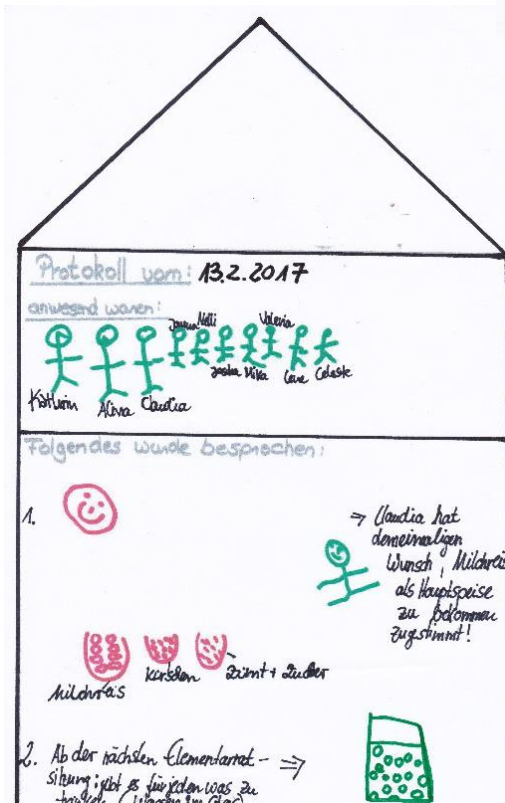 Protokoll vom: 13.2.2017
anwesend waren:
Nelli Valeria
Mika Celeste
Kathrin Alina Claudia
Folgendes wurde besprochen:
1.
⇒ Claudia hat
dem einmaligen
Wunsch, Milchreis
als Hauptspeise
zu bekommen
zugestimmt!
Milchreis Kirschen Zimt + Zucker
2. Ab der nächsten Elementarrat- ⇒
sitzung: gibt es für jeden was zu
trinken (Wasser im Glas)